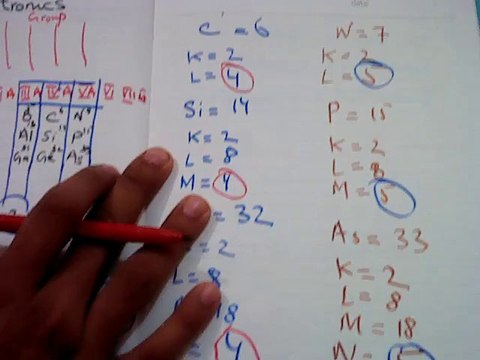 tronics
Group
III A IV A V A VI VII A
B C N
Al Si P
Ga Ge As
C = 6
K = 2
L = 4
Si = 14
K = 2
L = 8
M = 4
= 32
= 2
L = 8
18
4
N = 7
K = 2
L = 5
P = 15
K = 2
L = 8
M = 5
As = 33
K = 2
L = 8
M = 18